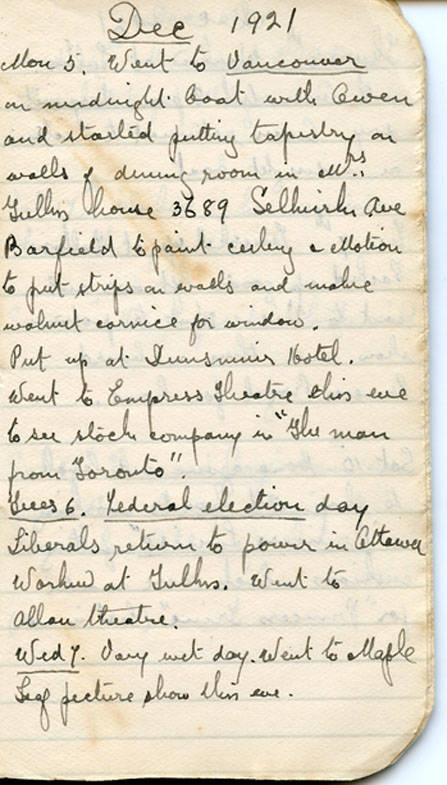 Dec 1921
Mon 5. Went to Vancouver
on midnight boat with Owen
and started putting tapestry on
walls of dining room in Mrs
house 3689 Selkirk Ave
Barfield to paint ceiling &
to put strips on walls and make
walnut cornice for window.
Put up at Dunsmuir Hotel.
Went to Empress Theatre this eve
to see stock company in "The man
from Toronto".
Tues 6. Federal election day
Liberals return to power in Ottawa
Worked at Went to
Allan theatre.
Wed 7. Very wet day. Went to Maple
Leaf picture show this eve.